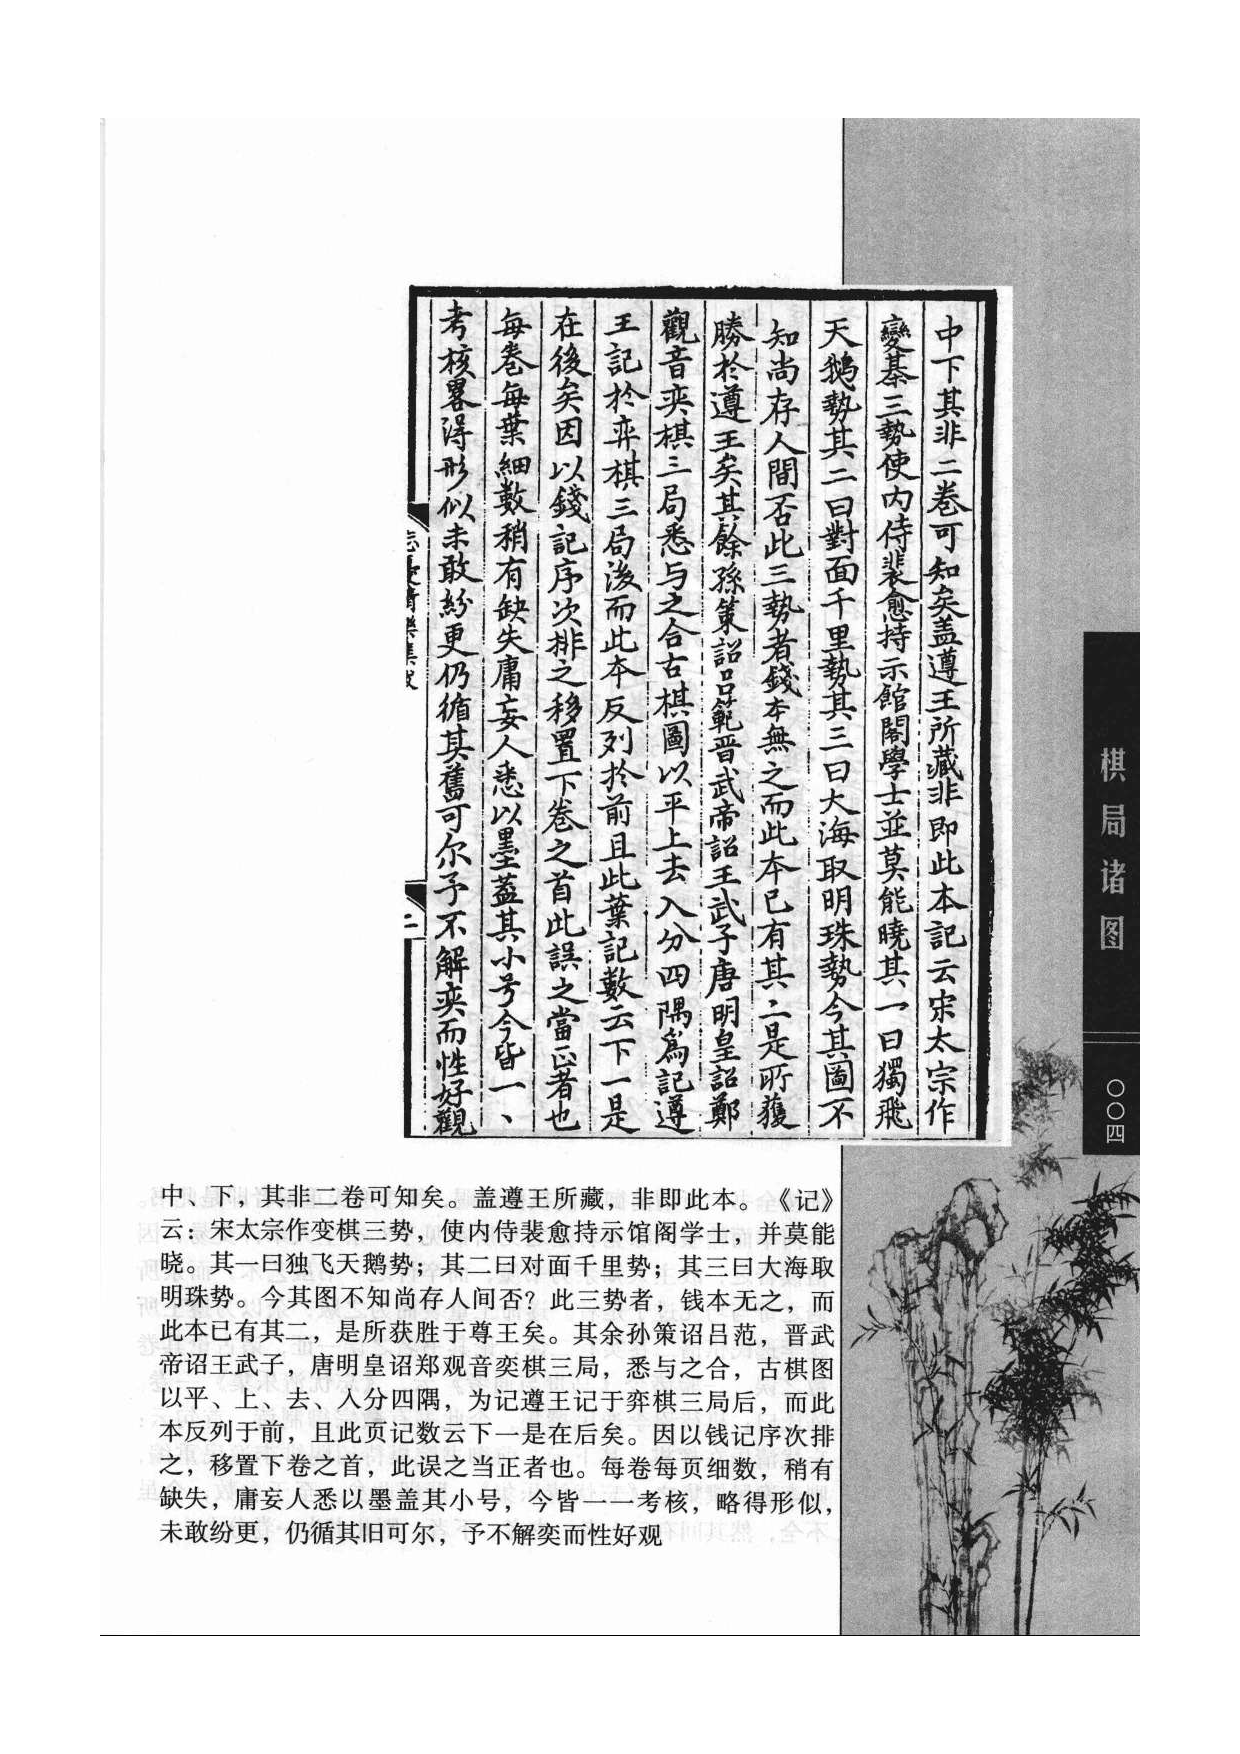 中下其非二卷可知矣盖遵王所藏非即此本記云宋太宗作
變棊三勢使内侍裴愈持示館閣學士並莫能曉其一曰獨飛
天鵝勢其二曰對面千里勢其三曰大海取明珠勢今其圖不
知尚存人間否此三勢者錢本無之而此本已有其二是所獲
勝於遵王矣其餘孫策詔呂範晋武帝詔王武子唐明皇詔鄭
觀音奕棋三局悉与之合古棋圖以平上去入分四隅為記遵
王記於弈棋三局後而此本反列於前且此葉記數云下一是
在後矣因以錢記序次排之移置下卷之首此誤之當正者也
每卷每葉細數稍有缺失庸妄人悉以墨蓋其小号今皆一、
考核畧得形似未敢紛更仍循其舊可尔予不解奕而性好觀
二
棋局诸图
〇〇四
中、下，其非二卷可知矣。盖遵王所藏，非即此本。《记》
云：宋太宗作变棋三势，使内侍裴愈持示馆阁学士，并莫能
晓。其一曰独飞天鹅势；其二曰对面千里势；其三曰大海取
明珠势。今其图不知尚存人间否？此三势者，钱本无之，而
此本已有其二，是所获胜于尊王矣。其余孙策诏吕范，晋武
帝诏王武子，唐明皇诏郑观音奕棋三局，悉与之合，古棋图
以平、上、去、入分四隅，为记遵王记于弈棋三局后，而此
本反列于前，且此页记数云下一是在后矣。因以钱记序次排
之，移置下卷之首，此误之当正者也。每卷每页细数，稍有
缺失，庸妄人悉以墨盖其小号，今皆一一考核，略得形似，
未敢纷更，仍循其旧可尔，予不解奕而性好观